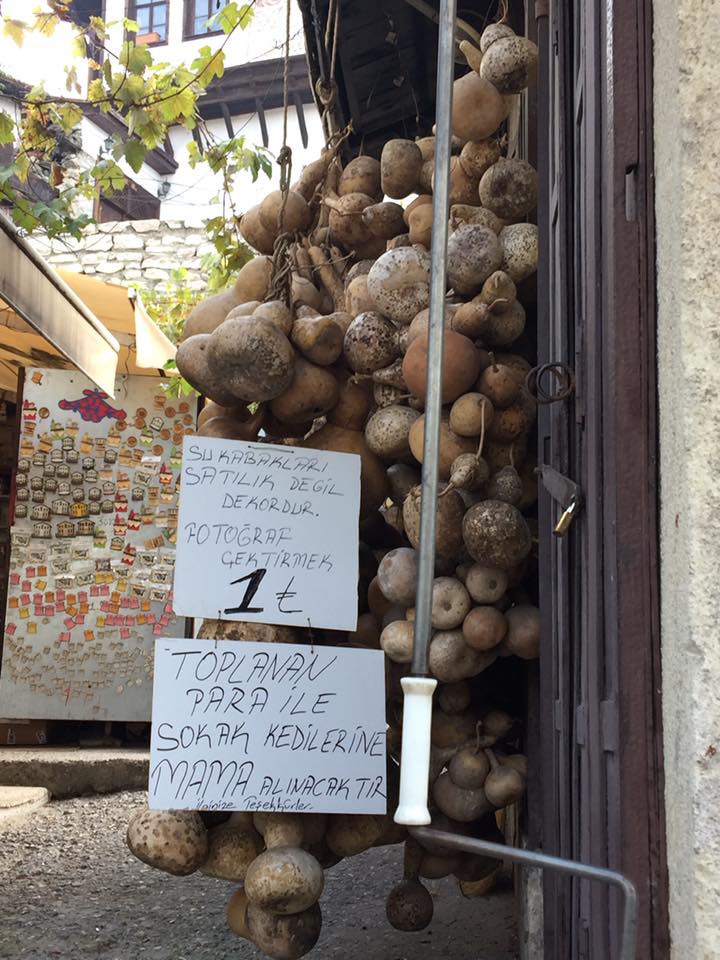 SU KABAKLARI
SATILIK DEĞİL
DEKORDUR.
FOTOĞRAF
ÇEKTİRMEK
1 ₺
TOPLANAN
PARA İLE
SOKAK KEDİLERİNE
MAMA ALINACAKTIR
İlginize Teşekkürler.